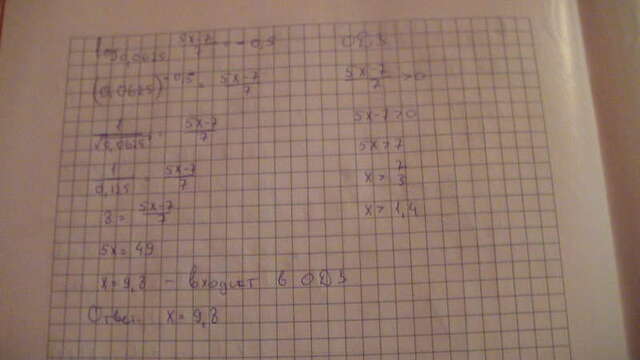 log₀,₀₆₂₅ (5x-7)/7 = -0,5
(0,0625)^(-0,5) = (5x-7)/7
1/√0,0625 = (5x-7)/7
1/0,125 = (5x-7)/7
8 = (5x-7)/7
5x = 49
x = 9,8 - входит в ОДЗ
Ответ x = 9,8
ОДЗ
(5x-7)/7 > 0
5x-7>0
5x>7
x > 1,4